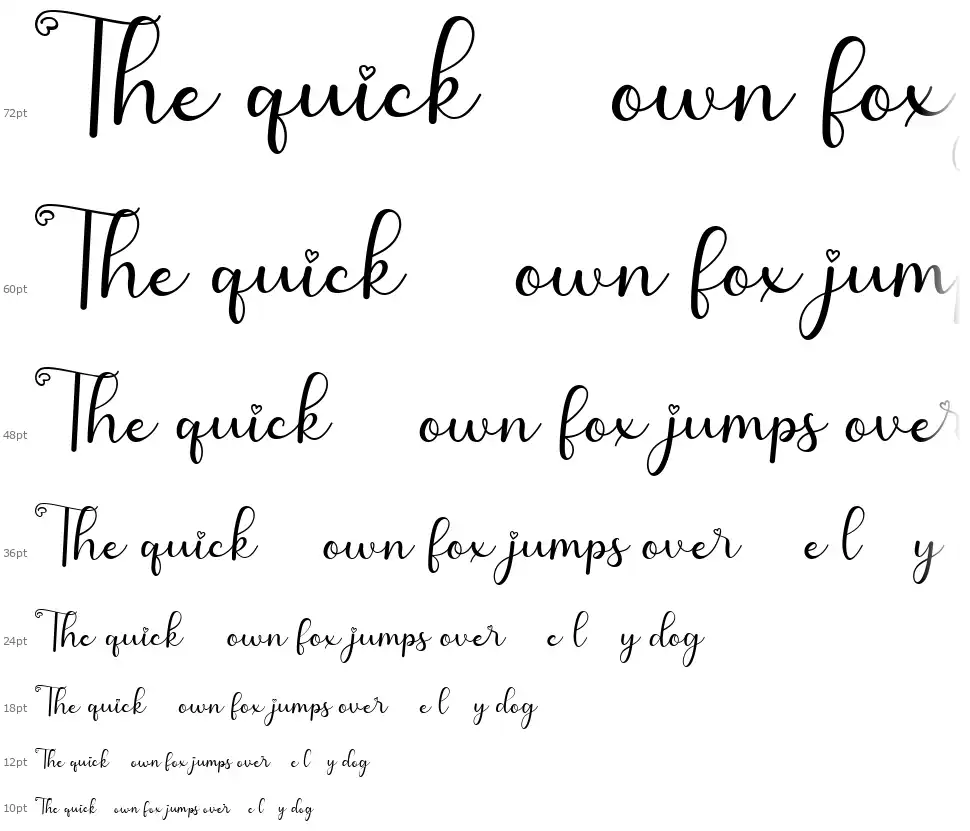 72pt The quick own fox
60pt The quick own fox jum
48pt The quick own fox jumps over
36pt The quick own fox jumps over e l y
24pt The quick own fox jumps over e l y dog
18pt The quick own fox jumps over e l y dog
12pt The quick own fox jumps over e l y dog
10pt The quick own fox jumps over e l y dog